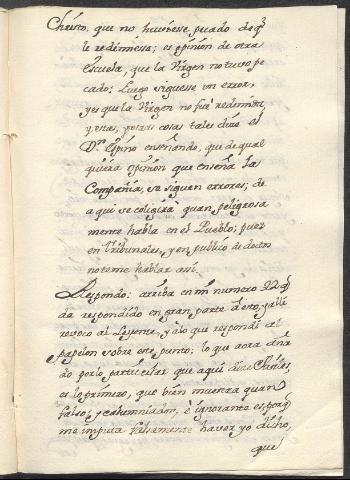 Christo, que no huviesse pecado de q̃
le redimiessa; es opinion de otra
escuela, que la Virgen no tuvo pe
cado: Luego siguesse un error,
y es que la Virgen no fue redimida,
y estas, y otras cosas tales dirá el
Dr. Espino enseñando, que de qual
quiera opinion que enseña la
Compañia, se siguen errores; de
aqui se coligirà quan peligrosa
mente habla en el Pueblo; pues
en Tribunales, y en publico de docto
no teme hablar assi.
Respondo: arriba en mi numero 22 q
da respondido en gran parte à esto, y allí
revoco al Leyente, y à lo que respondi al
papelon sobre este punto; lo que aora aña
do por lo particular que aqui dize
es lo primero, que bien muestra quan
falso, y calumniador, è ignorante es, porq̃
me imputa falsamente haver yo dicho,
que